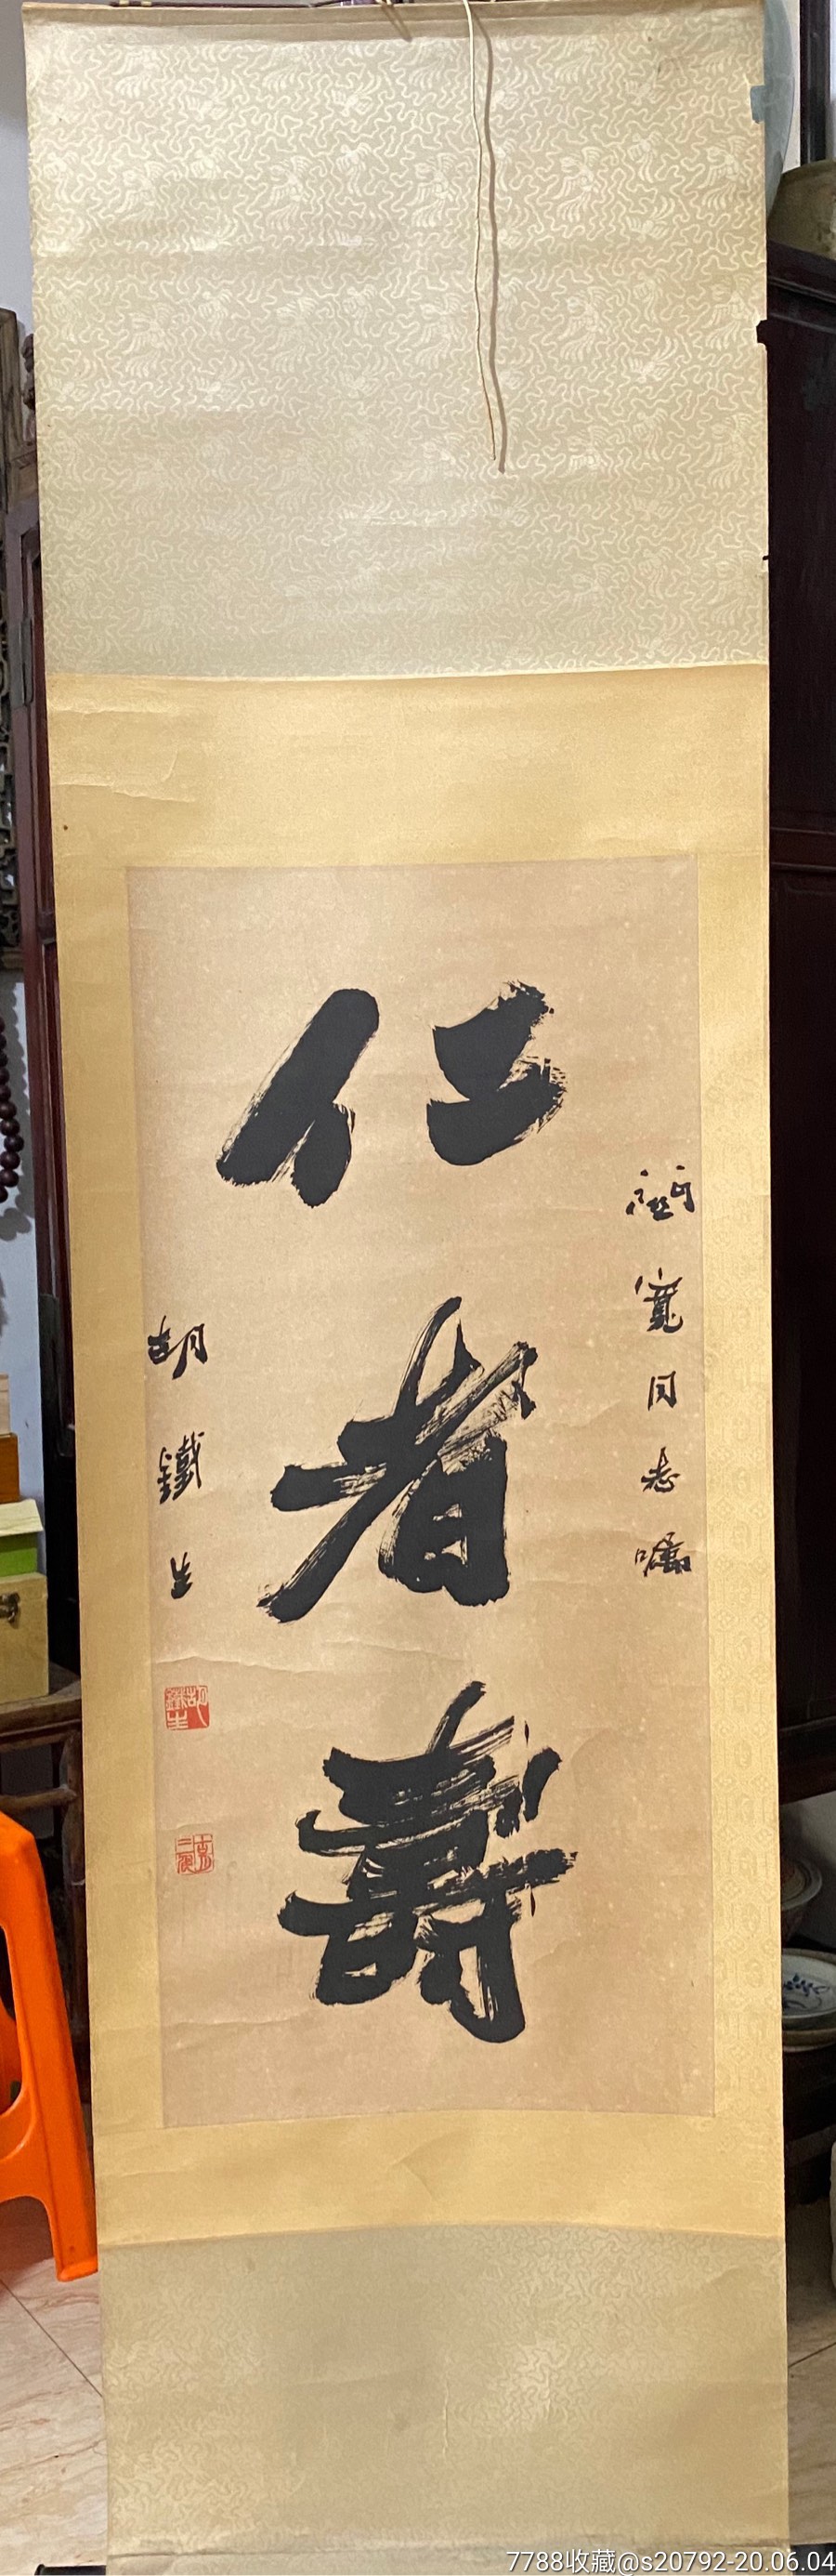 仁者壽
寬同志囑
胡鐵生
胡鐵生
7788收藏@s20792-20.06.04